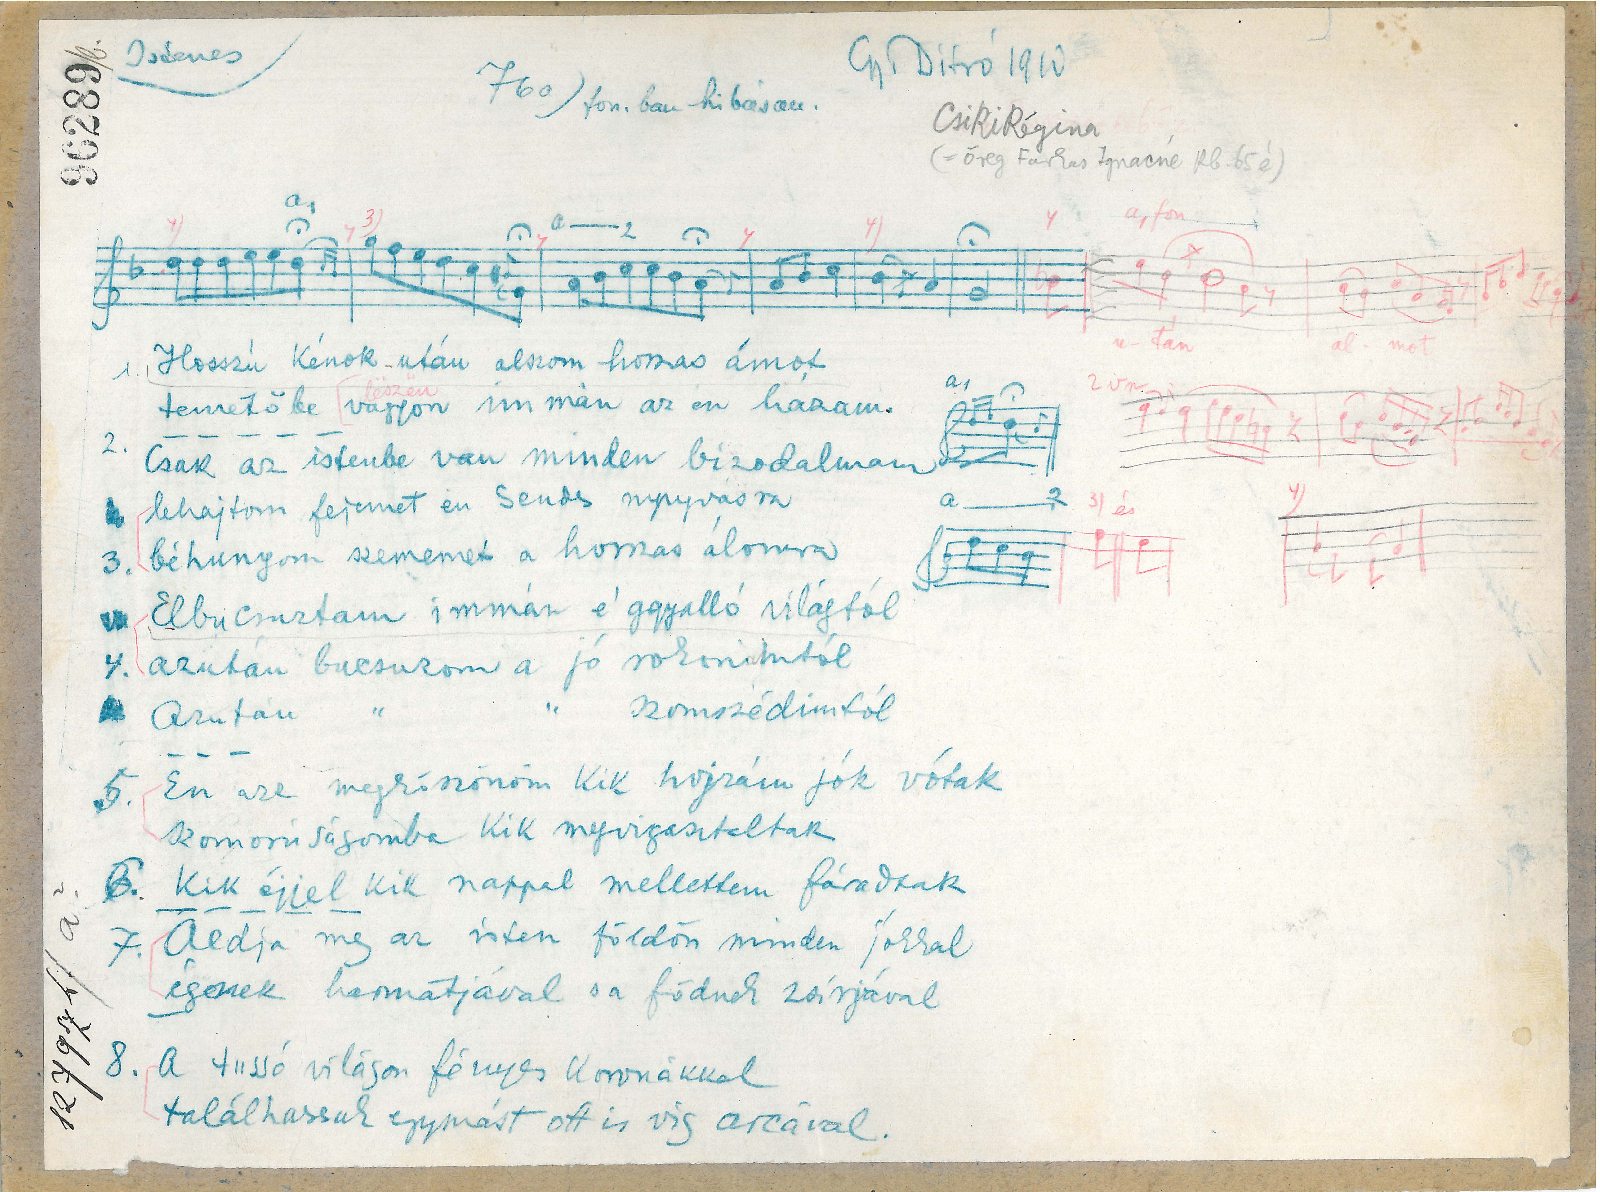 96289
760) fon. ban hibásan.
Gy. Ditró 1910
Csiki Régina
(= öreg Farkas Ignácné Kb. 65 é)
a, fon
u- tán
al- mot
1. Hosszú kénok után alszom hosszas ámot
lészën
temetőbe vagyon immán az én házam.
2. Csak az istenbe van minden bizodalmam
lehajtom fejemet én
3. béhunyom szememet a hosszas álomra
Elbucsuztam immán világtól
4. azután bucsuzom a jó rokonimtól
Azután " " szomszédimtól
5. En azt megköszönöm kik hozzám jók vótak
szomorúságomba kik megvigasztaltak
6. Kik éjjel kik nappal mellettem fáradtak
7. Áldja meg az isten földön minden jókkal
égenek harmatjával s a fődnek zsirjával
8. A tulsó világon fényes koronákkal
találhassuk egymást ott is vig arcával.
a 2
a 2
3) és
4)